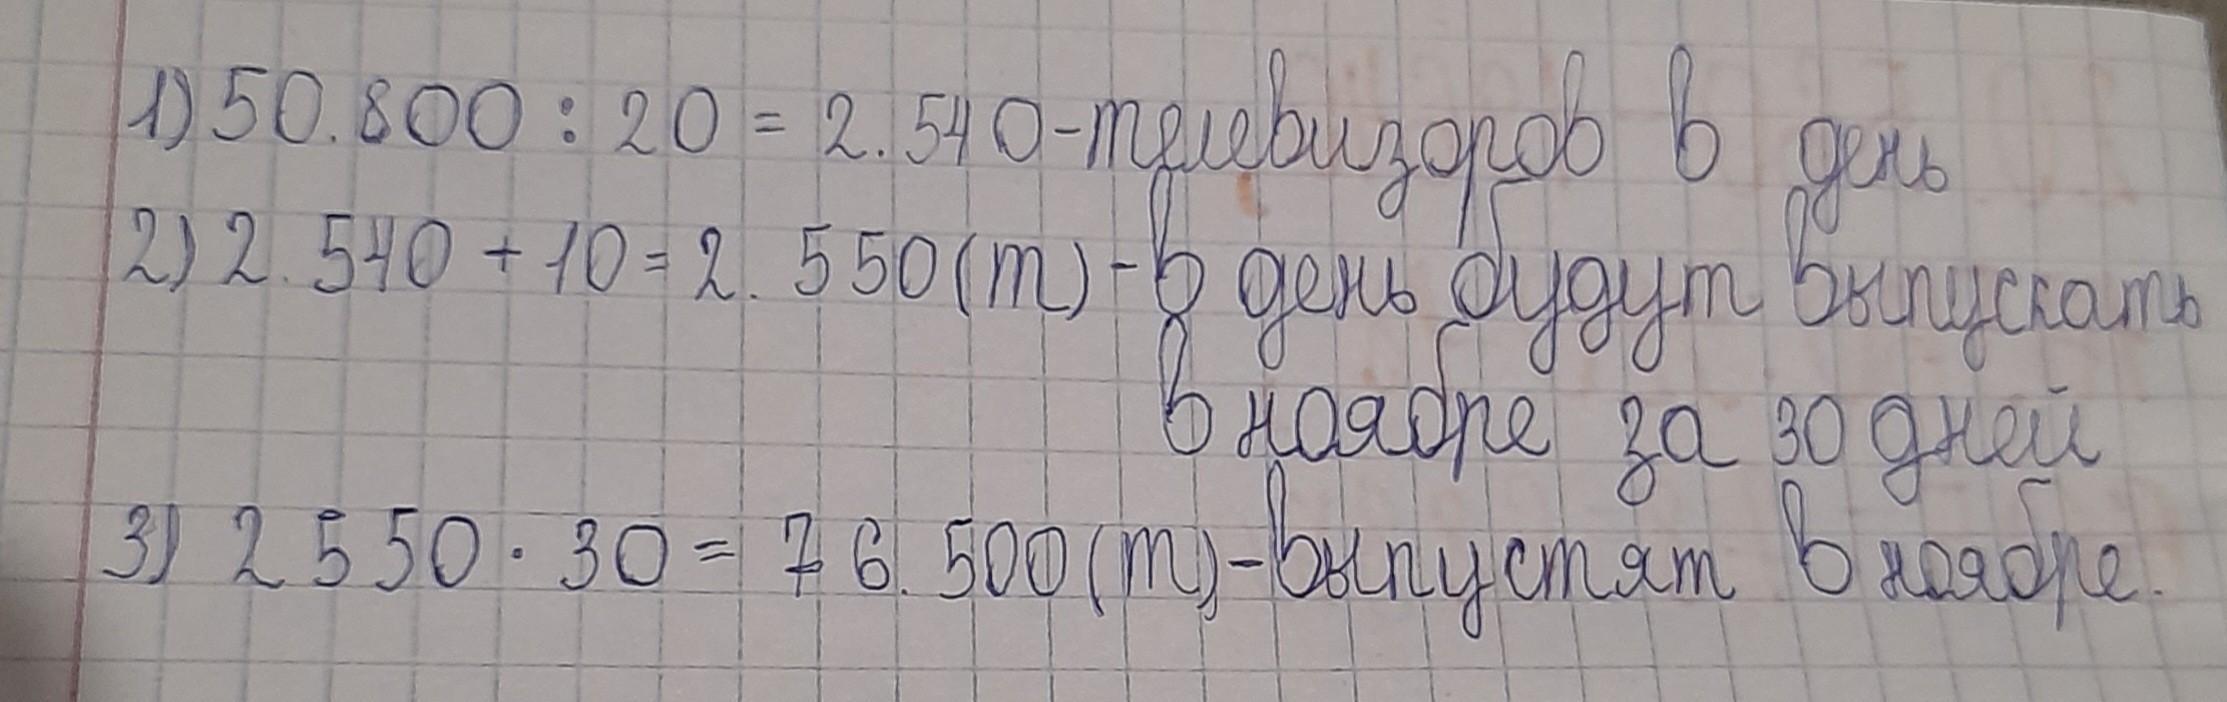 1) 50.800 : 20 = 2.540 - телевизоров в день
2) 2.540 + 10 = 2.550 (т) - в день будут выпускать
в ноябре за 30 дней
3) 2 550 · 30 = 76.500 (т) - выпустят в ноябре.